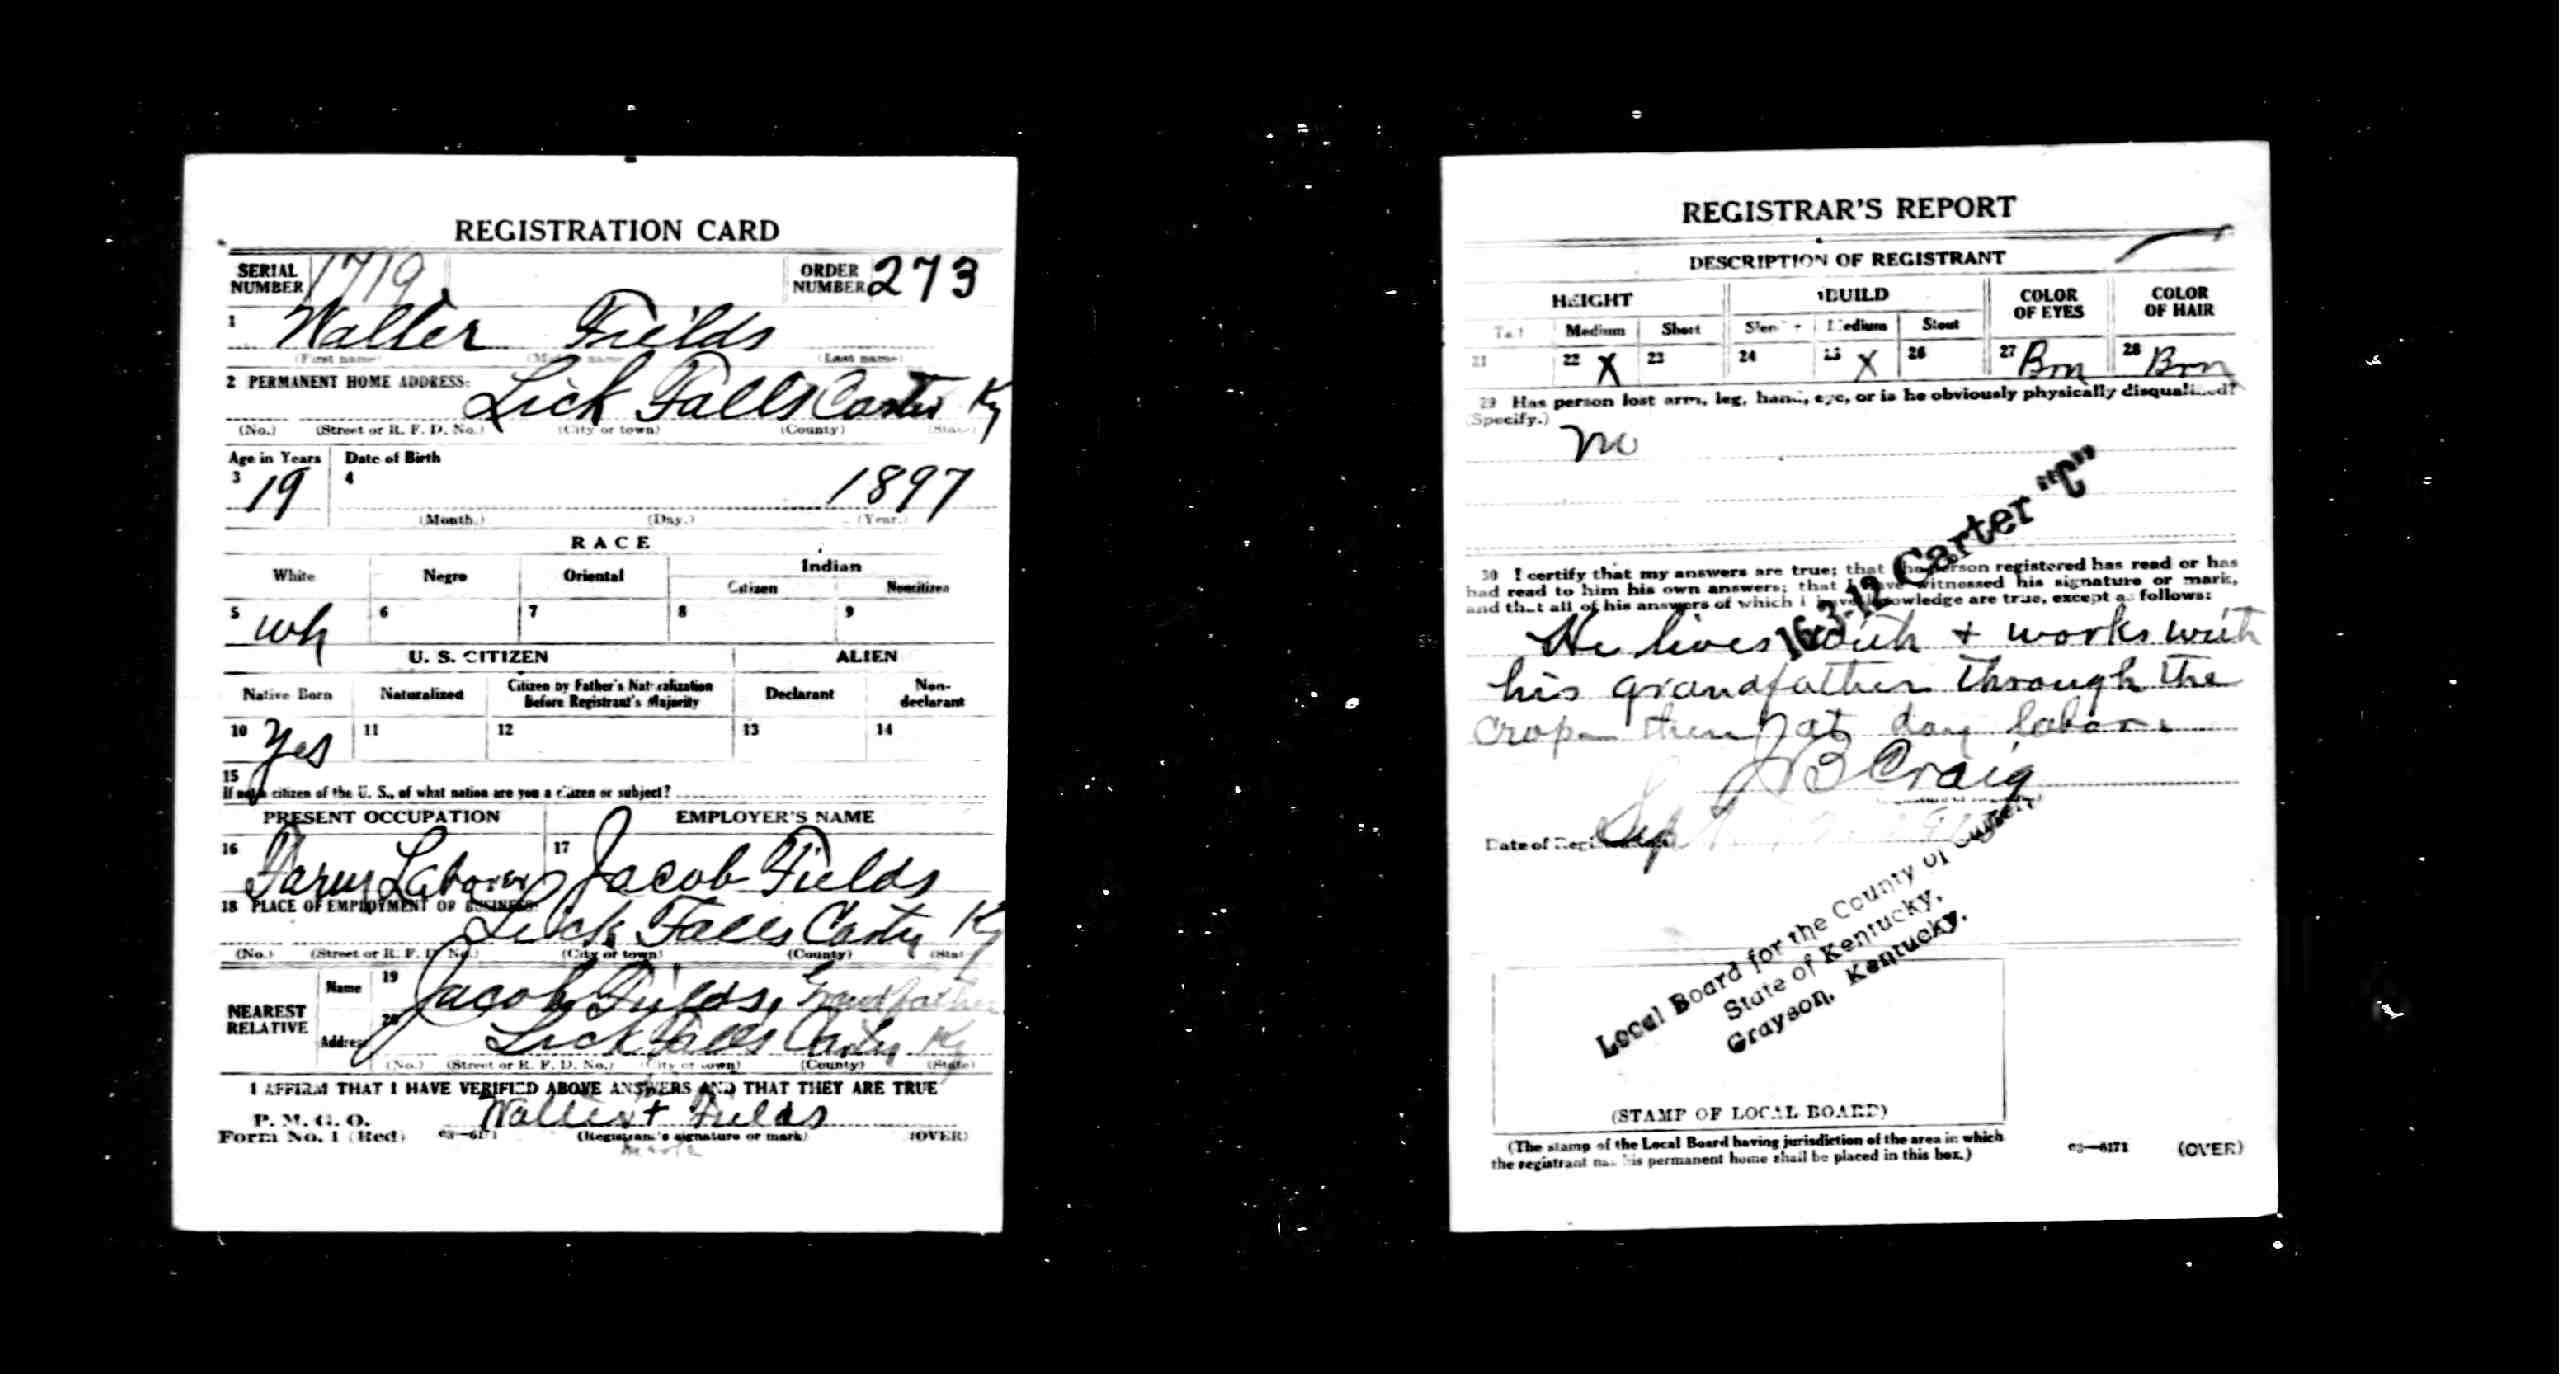 REGISTRATION CARD
SERIAL NUMBER 1719 ORDER NUMBER 273
1 Walter Fields
(First name) (Middle name) (Last name)
2 PERMANENT HOME ADDRESS: Lick Falls Carter Ky
(No.) (Street or R. F. D. No.) (City or town) (County) (State)
Age in Years Date of Birth
3 19 4 1897
(Month.) (Day.) (Year.)
RACE
White Negro Oriental Indian
Citizen Noncitizen
5 wh 6 7 8 9
U. S. CITIZEN ALIEN
Native Born Naturalized Citizen by Father's Naturalization Before Registrant's Majority Declarant Non-declarant
10 Yes 11 12 13 14
15
If not a citizen of the U. S., of what nation are you a citizen or subject?
PRESENT OCCUPATION EMPLOYER'S NAME
16 Farm Laborer 17 Jacob Fields
18 PLACE OF EMPLOYMENT OR BUSINESS:
Lick Falls Carter Ky
(No.) (Street or R. F. D. No.) (City or town) (County) (State)
NEAREST RELATIVE Name 19 Jacob Fields, Grandfather
Address 20 Lick Falls Carter Ky
(No.) (Street or R. F. D. No.) (City or town) (County) (State)
I AFFIRM THAT I HAVE VERIFIED ABOVE ANSWERS AND THAT THEY ARE TRUE
P. M. G. O.
Form No. 1 (Red) 03—6171 Walter + Fields
(Registrant's signature or mark) (OVER)
mark
REGISTRAR'S REPORT
DESCRIPTION OF REGISTRANT
HEIGHT BUILD COLOR OF EYES COLOR OF HAIR
Tall Medium Short Slender Medium Stout
21 22 X 23 24 25 X 26 27 Brn 28 Brn
29 Has person lost arm, leg, hand, eye, or is he obviously physically disqualified?
(Specify.) no
16-3-12 Carter "C"
30 I certify that my answers are true; that the person registered has read or has
had read to him his own answers; that I have witnessed his signature or mark,
and that all of his answers of which I have knowledge are true, except as follows:
He lives with + works with
his grandfather through the
crop then at day labor
J B Craig
Date of Registration Sept
Local Board for the County of Carter,
State of Kentucky,
Grayson, Kentucky.
(STAMP OF LOCAL BOARD)
(The stamp of the Local Board having jurisdiction of the area in which
the registrant has his permanent home shall be placed in this box.)
03—6171 (OVER)